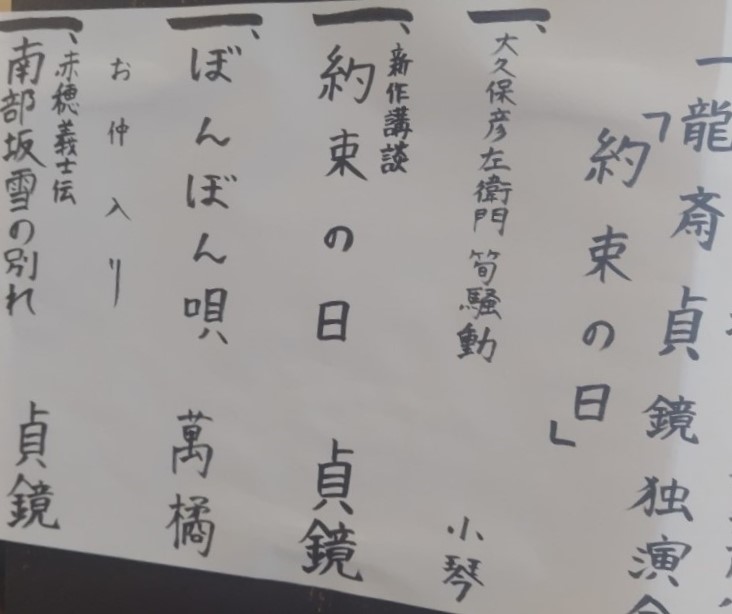 一龍斎貞鏡独演会
「約束の日」
一、大久保彦左衛門 筍騒動 小琴
一、新作講談
約束の日 貞鏡
一、ぼんぼん唄 萬橘
お仲入り
一、赤穂義士伝
南部坂雪の別れ 貞鏡